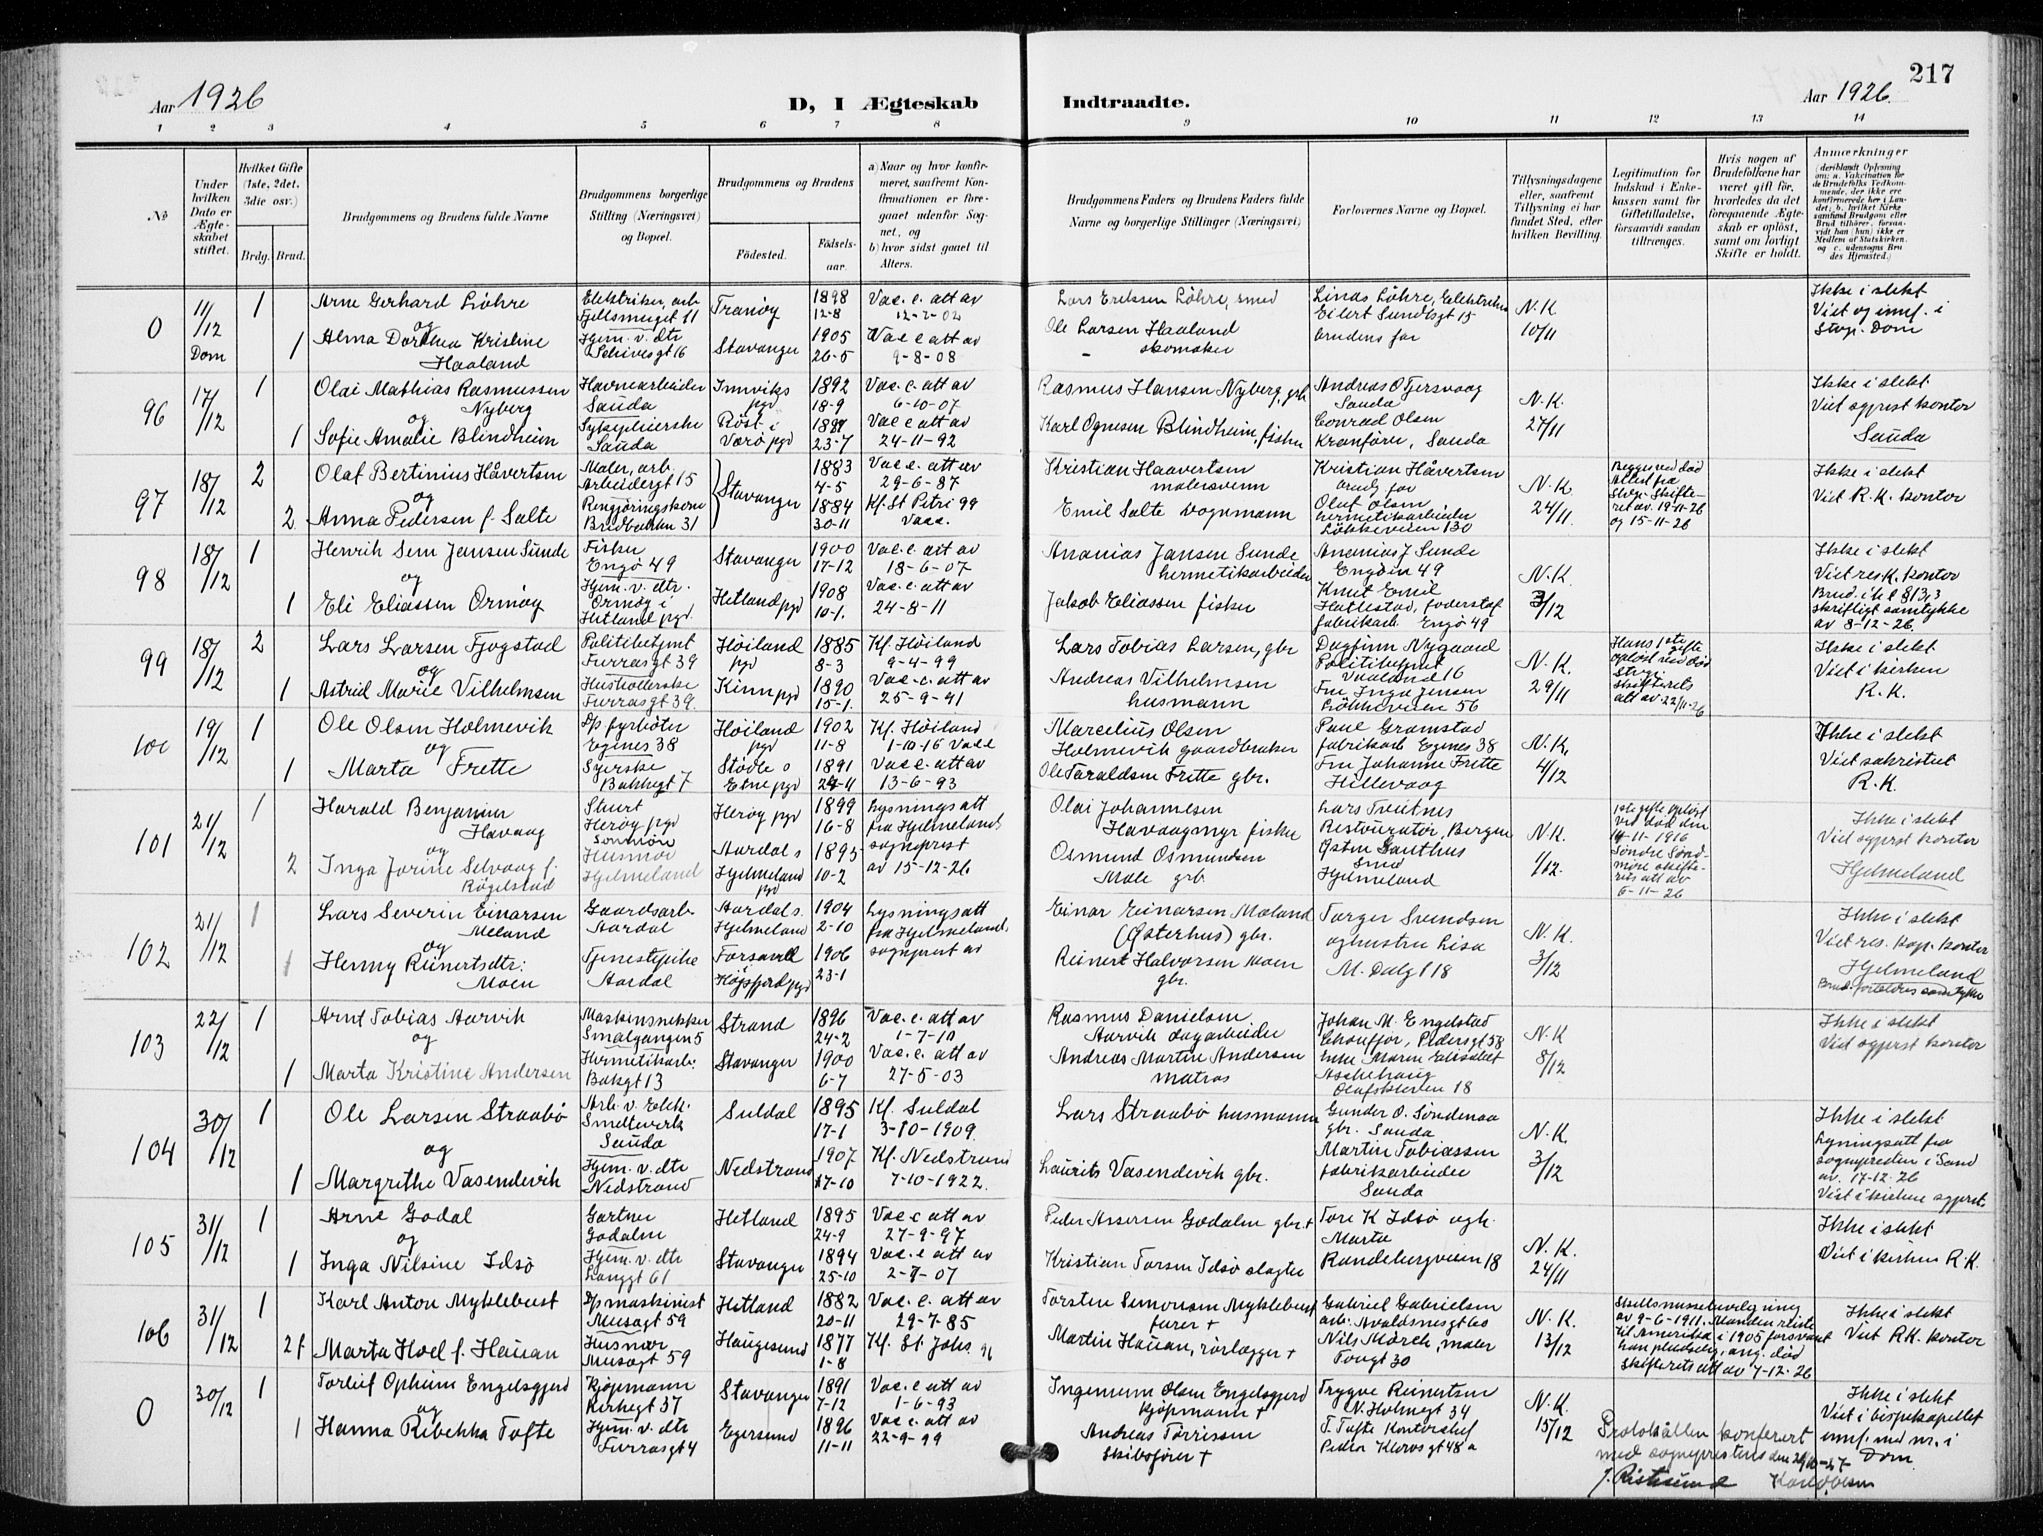 Aar 1926
D, I Ægteskab
Indtraadte.
Aar 1926.
217
1 2 3 4 5 6 7 8 9 10 11 12 13 14
No
Under hvilken Dato er Ægteskabet stiftet.
Hvilket Gifte (1ste, 2det, 3die osv.)
Brdg. Brud.
Brudgommens og Brudens fulde Navne
Brudgommens borgerlige Stilling (Næringsvei) og Bopæl.
Brudgommens og Brudens
Födested.
Födselsaar.
a) Naar og hvor konfirmeret, saafremt Konfirmationen er foregaaet udenfor Sognet, og
b) hvor sidst gaaet til Alters.
Brudgommens Faders og Brudens Faders fulde Navne og borgerlige Stillinger (Næringsvei)
Forlovernes Navne og Bopæl.
Tillysningsdagene eller, saafremt Tillysning ei har fundet Sted, efter hvilken Bevilling.
Legitimation for Indskud i Enkekassen samt for Giftetilladelse, forsaavidt saadan tiltrænges.
Hvis nogen af Brudefolkene har været gift för, hvorledes da det foregaaende Ægteskab er oplöst, samt om lovligt Skifte er holdt.
Anmærkninger
0 11/12 Dom 1 Arne Gerhard Löhre
og
1 Alma Dorthea Kristine
Haaland
Elektriker, arb
11
Hjem. v. dtr
16
Tranöy 1898
12-8
Stavanger 1905
26-5
Vac. e. att av
12-2-02
Vac e att av
9-8-08
Lars Eriksen Löhre, smed
Ole Larsen Haaland
skomaker
Linas Löhre, Elektriker
Eilert Sundtsgt 15
brudens far
N. K.
10/11
Ikke i slekt
Viet og innf. i
Dom
96 17/12 1 Olai Mathias Rasmussen
Nyberg
og
1 Sofie Amalie Blindheim
Havnearbeider
Sauda
Sykepleierske
Sauda
Innviks
pgd
Röst i
Værö pgd
1892
18-9
23-7
Vac. e. att av
6-10-07
Vac e att av
24-11-92
Rasmus Hansen Nyberg, grb
Karl Ognesen Blindheim, fisker
Andreas O Tjersvaag
Sauda
Conrad Olsen
Kranförer, Sauda
N. K.
27/11
Ikke i slekt
Viet sgprest kontor
Sauda
97 18/12 2 Olaf Bertinius Håvertsen
og
2 Anna Pedersen f. Salte
Maler, arb
Arbeidergt 15
Rengjöringskone
31
Stavanger
1883
4-5
1884
30-11
Vac e. att av
29-6-87
Kf. St Petri 99
Vacc.
Kristian Haavertsen
malersvenn
Emil Salte vognmann
Kristian Håvertsen
brudg. far
Olaf Olsen
hermetikarbeider
Lökkeveien 130
N. K.
24/11.
Begge ved död
Attest fra
Stvgr. Skifte-
ret av. 19-11-26
og 15-11-26
Ikke i slekt
Viet R. K. kontor
98 18/12 1 Henrik Sem Jansen Sunde
og
1 Eli Eliassen Ormöy
Fisker
Engö 49
Hjem. v. dtr.
Ormöy i
Hetland pgd.
Stavanger
Hetland pgd
1900
17-12
1908
10-1.
Vac. e. att av
18-6-07
Vac. e. att av
24-8-11
Ananias Jansen Sunde
hermetikarbeider
Jakob Eliassen fisker
Ananias J Sunde
Engöen 49
Knut Emil
Hatlestad, foderstof
fabrikarb Engö 49
N. K.
3/12
Ikke i slekt
Viet res. K. kontor
skriftligt samtykke
av 8-12-26.
99 18/12 2 Lars Larsen Fjogstad
og
1 Astrid Marie Vilhelmsen
Politibetjent
Furrasgt 39
Husholderske
Furrasgt 39.
Höiland
pgd
Kinn pgd
1885
8-3
1890
15-1.
Kf. Höiland
9-4-99
Vac. e. att av
25-9-91
Lars Tobias Larsen, gbr
Andreas Vilhelmsen
husmann
Dagfinn Nygaard
Politibetjent
Vaaland 16
Fru Inga Jensen
Lökkeveien 56
N. K.
29/11
Hans 1ste gifte
oplöst ved död
skifterets
att av 22/11-26
Ikke i slekt
Viet i kirken
R. K.
100 19/12 1 Ole Olsen Holmevik
og
1 Marta Frette
D/p fyrböter
Egenes 38
Syerske
Bakkegt 7
Höiland
pgd
Stödle s
Etne pgd
1902
11-8
1891
29-11
Kf. Höiland
1-10-16 Vac e
Vac e. att av
13-6-93
Marcelius Olsen
Holmevik gaardbruker
Ole Taraldsen Fritte gbr.
Paul Gramstad
fabrikarb Egenes 38
Fru Johanne Fritte
Hillevaag
N. K.
4/12
Ikke i slekt
Viet sakristiet
R. K.
101 21/12 1 Harald Benjamin
Havaag
og
2 Inga Jorine Selvaag f.
Rögelstad
Stuert
Heröy pgd
Söndmör
Husmor
Hjelmeland
Heröy pgd
Aardal s
Hjelmeland
pgd
1899
16-8
1895
10-2
Lysnings att
fra Hjelmeland
sogneprest
av 15-12-26
Olai Johannesen
Havaagmyr fisker
Osmund Osmundsen
Mæle grb
Lars Tveitnes
Restouratör, Bergen
Smed
Hjelmeland
N. K.
1/12.
1ste gifte oplöst
ved död den
14-11-1916
Söndre Sönd-
möre skifte-
rets att av
6-11-26
Ikke i slekt
Viet sgprest kontor
Hjelmeland
102 21/12 1 Lars Severin Einarsen
Meland
og
1 Henny Reinertsdtr:
Moen
Gaardsarb.
Aardal
Tjenestepike
Aardal
Aardal s.
Hjelmeland
Forsand
Högsfjord pgd
1904
2-10
1906
23-1
Lysnings att
fra Hjelmeland,
sogneprest av
Einar Einarsen Meland
(Østerhus) gbr.
Reinert Halvorsen Moen
gbr.
Torger Svendsen
og hustru Lisa
M. Dalgt 18
N. K.
3/12
Ikke i slekt
Viet res. kap. kontor
Hjelmeland
Brud. forældres samtykke
103 22/12 1 Arnt Tobias Aarvik
og
1 Marta Kristine Andersen
Maskinsnekker
Smalgangen 5
Hermetikarb.
Bakgt 13
Strand
Stavanger
1896
24-2
1900
6-7
Vac. e. att av
1-7-10
Vac. e. att av
27-5-03
Rasmus Danielsen
Aarvik dagarbeider
Andreas Martin Andersen
matros
Johan M. Engelstad
Chauffør, Pedersgt 58
Enke Maren Elisabet
Aschehaug
Olafskleven 18
N. K
8/12
Ikke i slekt
Viet sgprst kontor
104 30/12 1 Ole Larsen Straabö
og
1 Margrithe Vasendevik
Arb. v. Elek.
Smelteverk
Sauda
Hjem. v. dtr
Nedstrand
Suldal
Nedstrand
1895
17-1
1907
17-10
Kf. Suldal
3-10-1909.
Kf. Nedstrand
7-10-1922.
Lars Straabö husmann
Laurits Vasendevik gbr.
Gunder O. Söndenaa
gbr. Sauda
Martin Tobiassen
fabrikarbeider
Sauda
N. K.
3/12
Ikke i slekt
Lysningsatt fra
sognepresten i Sand
av. 17-12-26
Viet i kirken sgprst.
105 31/12 1 Arne Godal
og
1 Inga Nilsine Idsö
Gartner
Godalen
Hjem. v. dtr
Langgt 61
Hetland
Stavanger
1895
24-9
1894
25-10
Vac e att av
27-9-97
Vac. e att av
2-7-07
Peder Assersen Godalen gbr +
Kristian Torsen Idsö slagter
Tore K Idsö og h.
Marta
Randebergveien 18
N. K.
24/11
Ikke i slekt
Viet i kirken R. K.
106 31/12 1 Karl Anton Myklebust
2 f Marta Hoel f. Hauan
D/p maskinist
Musegt 59
Husmor
Musegt 59
Hetland
Haugesund
1882
20-11
1877
1-8
Vac. e. att av
29-7-85
Kf. St Johs. 91
Torsten Simonsen Myklebust
förer +
Martin Hauan, rörlægger +
Gabriel Gabrielsen
arb. Avaldsnesgt 60
Nils Mörck, maler
Tougt 30
N. K.
13/12
Skilsmissebevilgning
av 9-6-1911. Manden reiste
til Amerika i 1905 forsvant
ang. död
skifterets att av 7-12-26
Ikke i slekt
Viet R. K. kontor
0 30/12 1 Torleif Ophim Engelsgjerd
og
1 Hanna Ribekka Tofte
Kjöpmann
Kirkegt 37
Hjem. v. dtr
Furrasgt 4
Stavanger
Egersund
1891
7-12
1896
11-11
Vac. e att av
1-6-93
Vac e. att av
22-9-99
Ingemum Olsen Engelsgjerd
Kjöpmann +
Andreas Törrissen
Skibsförer +
Trygve Reinertsen
N. Holmegt 34
T. Tofte Kontorchef
Peder Klovs gt 48 a
N. K.
15/12
Ikke i slekt
Viet i bispekapellet
innf. med nr. i
Dom.
Protokollen konferert
med sognepresten den 20/10-27